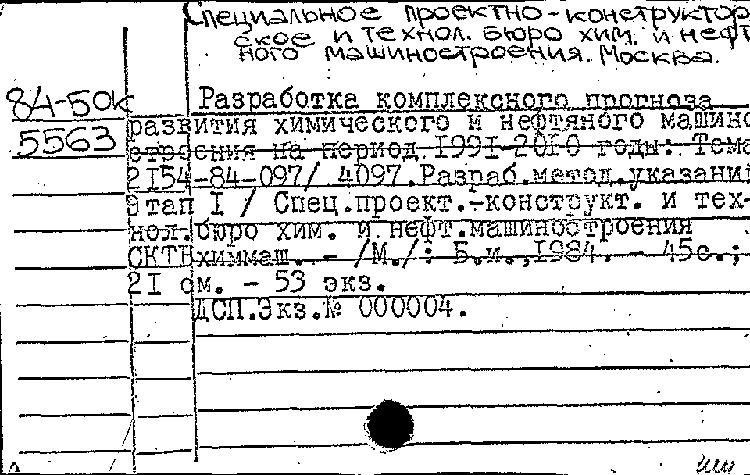 Специальное проектно-конструктор
ское и технол. бюро хим. и нефт
ного машиностроения. Москва.
84-50к
5563
Разработка комплексного прогноза
развития химического и нефтяного машино
строения на период 1991-2010 годы: Тема
2154-84-097/ 4097.Разраб.метод.указаний
Этап I / Спец.проект.-конструкт. и тех-
нол.бюро хим. и нефт.машиностроения
СКТБхиммаш. - /М./: Б.и.,1984. - 45с.;
21 см. - 53 экз.
ДСП.Экз.№ 000004.